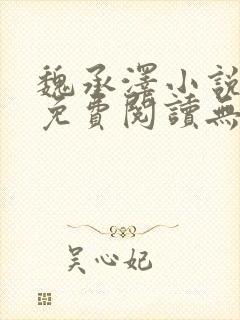 魏承澤小說
免費閱讀無
吴心妃